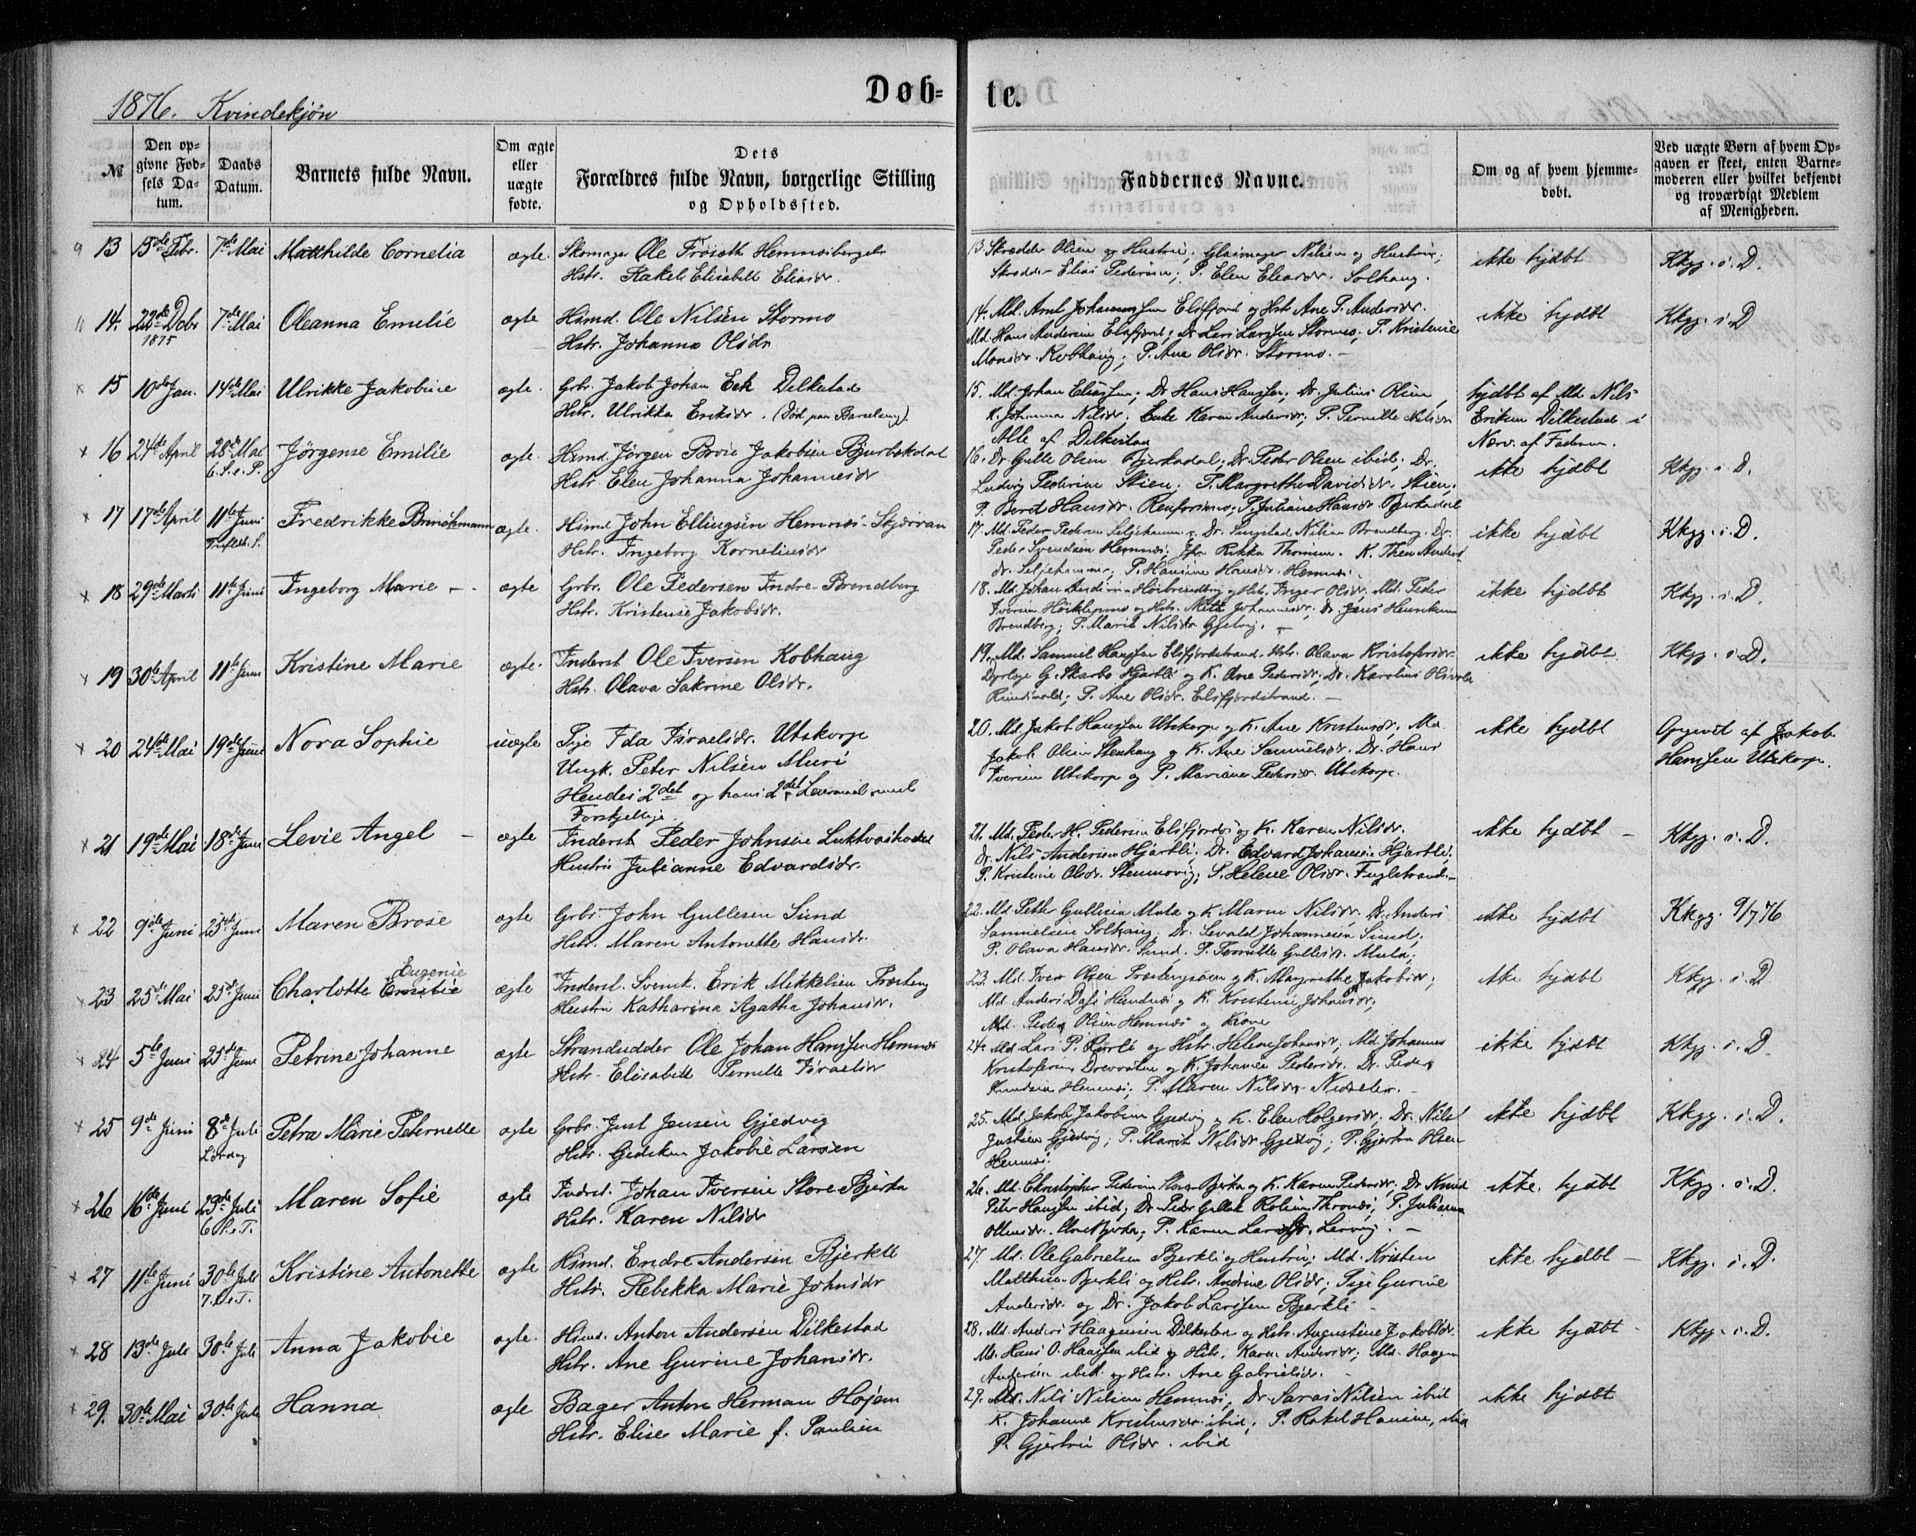 1876. Kvindekjøn
Døb- te.
№
Den opgivne Fødsels Datum.
Daabs Datum.
Barnets fulde Navn.
Om ægte eller uægte fødte.
Dets Forældres fulde Navn, borgerlige Stilling og Opholdssted.
Faddernes Navne.
Om og af hvem hjemmedøbt.
Ved uægte Børn af hvem Opgaven er skeet, enten Barnemoderen eller hvilket bekjendt og troværdigt Medlem af Menigheden.
13 15de Febr. 7de Mai Mathilde Cornelia ægte. Skomager Ole Hemnesberget
Hstr. Elisabeth Eliasdr.
13 Skrædder Olsen og Hustru; Glasmager Nilsen og Hustru;
Skrædder Elias Pedersen; P. Elen Eliasdr. Solhaug.
ikke hjdbt Kkgg. i. D.
14. 22de Dcbr 1875 7de Mai Oleanna Emelie ægte Hsmd. Ole Nilsen Stormo
Hstr. Johanna Olsdr
14. Md. Arnt Johannessen Elsfjord og Hstr Ane P. Andersdr.
Md. Hans Andersen Elsfjord; Dr. Lars Larssen Stormo; P. Kristense
Monsdr. Kobhaug; P. Ane Olsdr. Stormo. –
ikke hjdbt Kkgg. i. D
15 10de Jan. 14de Mai Ulrikke Jakobine ægte. Grbr. Jakob Johan Eek Dilkestad
Hstr. Ulrikka Eriksdr. (Død paa Barseleng).
15. Md. Johan Eliassen; Dr. Hans Hanssen; Dr. Julius Olsen,
K. Johanna Nilsdr; Enke Karen Andersdr; P. Pernille Nilsdr
Alle af Dilkestad
hjdbt af Md. Nils
Eriksen Dilkestad i
Nærv. af Faderen.
16 24de April 28de Mai 6 S. e. P. Jørgense Emilie ægte. Hsmd. Jørgen Jakobsen Bjerkadal
Hstr. Elen Johanna Johannesdr
16. Dr. Gulle Olsen Bjerkadal; Dr. Peder Olsen ibid; Dr.
Ludvig Pedersen Stien; P. Margrethe Davidsdr. Stien;
P. Berit Hansdr. P. Juliane Hansdr Bjerkadal
ikke hjdbt Kkgg. i D.
17 17de April 11te Juni Fredrikke Brinchmann ægte. Hsmd John Ellingsen Hemnes-Skjærvan
Hstr. Ingeborg Kornelusdr
17. Md. Peder Pedersen Seljehammr; Dr. Nilsen Brendberg. Dr.
Peder Svendsen Hemnes; Jfr Rikka Thomsen. K.
Seljehammr; P. Hansine Hansdr Hemnes.
ikke hjdbt Kkgg. i. D.
18 29de Marts 11te Juni Ingeborg Marie – ægte Grbr. Ole Pedersen Indre-Brendberg
Hstr. Kristense Jakobsdr.
18. Md. Johan og Hstr. Inger Olsdr, Md. Peder
Iversen og Hstr. Mette Johannesdr; Dr. Jens Henriksen
Brendberg; P. Marit Nilsdr Gjedvig. –
ikke hjdbt Kkgg. i. D.
19 30te April 11te Juni Kristine Marie ægte. Inderst Ole Iversen Kobhaug
Hstr. Olava Sakrine Olsdr.
19. Md. Samuel Hanssen Elsfjordstrand. Hstr. Olava Kristofersdr
G. Hjartli og K. Ane Pedersdr; Dr. Karolius
P. Ane Olsdr. Elsfjordstrand. –
ikke hjdbt. Kkgg. i D.
20 24de Mai 19de Juni Nora Sophie uægte Pige Ida Israelsdr. Utskorpe
Ungk. Peter Nilsen Muri
Hendes 2det og hans 2det Leiermaal med
Forskjellige.
20. Md. Jakob Hanssen Utskorpe og K. Ane Kristensdr; Md.
Jakob Olsen Stenhaug og K. Ane Samuelsdr. Dr. Hans
Iversen Utskorpe og P. Mariane Pedersdr Utskorpe.
ikke hjdbt Opgivet af Jakob
Hanssen Utskorpe.
21 19de Mai 18de Juni Levie Angel – ægte Inderst Peder Johnsen
Hustru Julianne Edvardsdr.
21. Md. Peder H. Pedersen Elsfjordes og K. Karen Nilsdr.
Dr. Nils Andersen Hjartli; Dr. Edvard Johansen Hjartli;
P. Kristine Olsdr. P. Helene Olsdr. Fuglstrand. –
ikke hjdbt – Kkgg. i. D.
22 9de Juni 25de Juni Maren Brose ægte Grbr. John Gullesen Sund
Hstr. Maren Antonette Hansdr.
22. Md. Peder Gullesen Mula og K. Maren Nilsdr. Dr. Anders
Samuelsen Solhaug; Dr. Sevald Johannesen Sund;
P. Olava Hansdr. Sund, P. Pernille Gullesdr. Mula;
ikke hjdbt Kkgg. 9/7 76
23 25de Mai 25de Juni Charlotte Emilie Eugenie ægte Inderst. Svend. Erik Mikkelsen
Hustru Katharina Agatha Johansdr.
23. Md. Iver Olsen og K. Margrethe Jakobsdr;
Md. Anders Hemnes og K. Kristense Johansdr;
Md. Peder Olsen Hemnes og Kone
ikke hjdbt Kkgg. i. D
24 5te Juni 25de Juni Petrine Johanne ægte Strandsidder Ole Johan Hanssen Hemnes
Hstr. Elisabeth Pernille Israelsdr
24. Md Lars P. og Hstr. Helene Johansdr, Md Johannes
Kristofersen Drevvatn og K. Johanna Pedersdr. Dr. Peder
Knudsen Hemnes; P. Maren Nilsdr.
ikke hjdbt Kkgg. i. D.
25 9de Juni 8de Juli Lørdag Petra Marie Peternelle ægte Grbr. Just Jensen Gjedvig
Hstr. Gidsken Jakobie Larsen
25. Md. Jakob Jakobsen Gjedvig og K. Elen Holgersdr; Dr. Nils
Justsen Gjedvig; P. Marit Nilsdr Gjedvig; P. Gjertru Olsen
Hemnes.
ikke hjdbt Kkgg. i. D.
26 16de Juni 23de Juli 6 S. e. T. Maren Sofie ægte Inderst. Johan Iversen Store Bjerka
Hstr. Karen Nilsdr
26. Md. Christopher Pedersen Store Bjerka og K. Karen Pedersdr; Dr Knud
Peter Hanssen ibid; Dr Peder P. Juliana
P. Karen Larsdr. Lervig. –
ikke. hjdbt Kkgg. i. D.
27 11te Juni 30te Juli 7. S. e. T. Kristine Antonette ægte Hsmd. Endre Andersen Bjerkli
Hstr. Rebekka Marie Johnsdr
27. Md. Ole Gabrielsen Bjerkli og Hustru; Md. Kristen
Matthisen Bjerkli og Hstr. Andrine Olsdr; Pige Gurine
Andersdr. og Dr. Jakob Larssen Bjerkli –
ikke hjdbt – Kkgg. i. D.
28 13de Juli 30te Juli Anna Jakobie ægte. Hsmd. Anton Andersen Dilkestad
Hstr. Ane Gurine Johansdr.
28. Md. Anders Haagensen Dilkestad og Hstr. Augustine Jakobsdr.
Md. Hans O. ibid og Hstr. Karen Andersdr; Md. Haagen
Andersen ibid. og Hstr. Ane Gabrielsdr. –
ikke hjdbt – Kkgg. i. D.
29. 30te Mai 30te Juli Hanna ægte Bager Anton Herman Højem
Hstr. Elise Marie f. Paulsen
29. Md. Nils Nilsen Hemnes; Dr. Nilsen ibid
K. Johanne Kristensdr ibid; P. Rakel Hansine, ibid
P. Gjertru Olsdr. ibid
ikke hjdbt